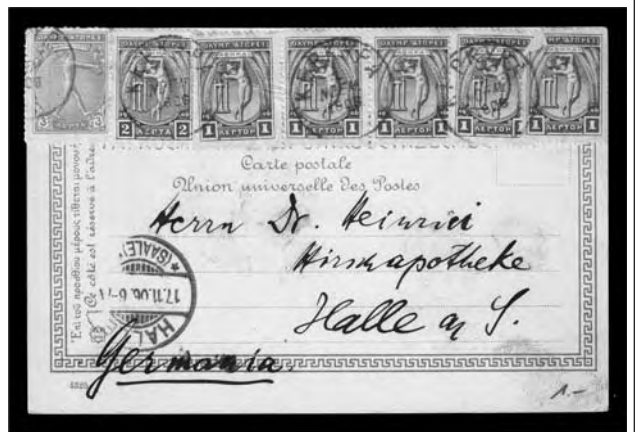 3 ΛΕΠΤΑ 3
2 ΛΕΠΤΑ 2
1 ΛΕΠΤΟΝ 1
1 ΛΕΠΤΟΝ 1
1 ΛΕΠΤΟΝ 1
1 ΛΕΠΤΟΝ 1
1 ΛΕΠΤΟΝ 1
Carte postale
Union universelle des Postes
Ce côté est réservé à l'adre
Herrn Dr. Heinrici
Hirschapotheke
Halle a/ S.
Germania.
HAL
*(SAALE)*
17.11.06. 6-7
1.-